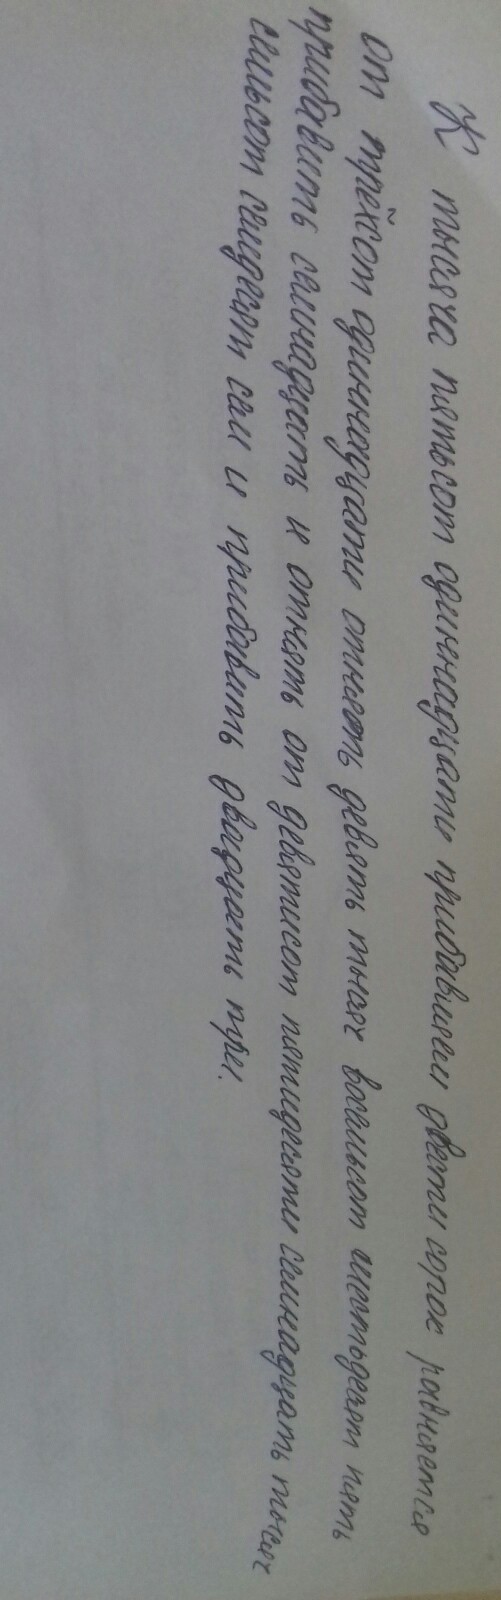 К тысяча пятьсот одиннадцати прибавляем двести сорок равняется
от трёхсот одиннадцати отнять девять тысяч восемьсот шестьдесят пять
прибавить семнадцать и отнять от девятисот пятидесяти семнадцать тысяч
семьсот семдесят сем и прибавить двадцать три.